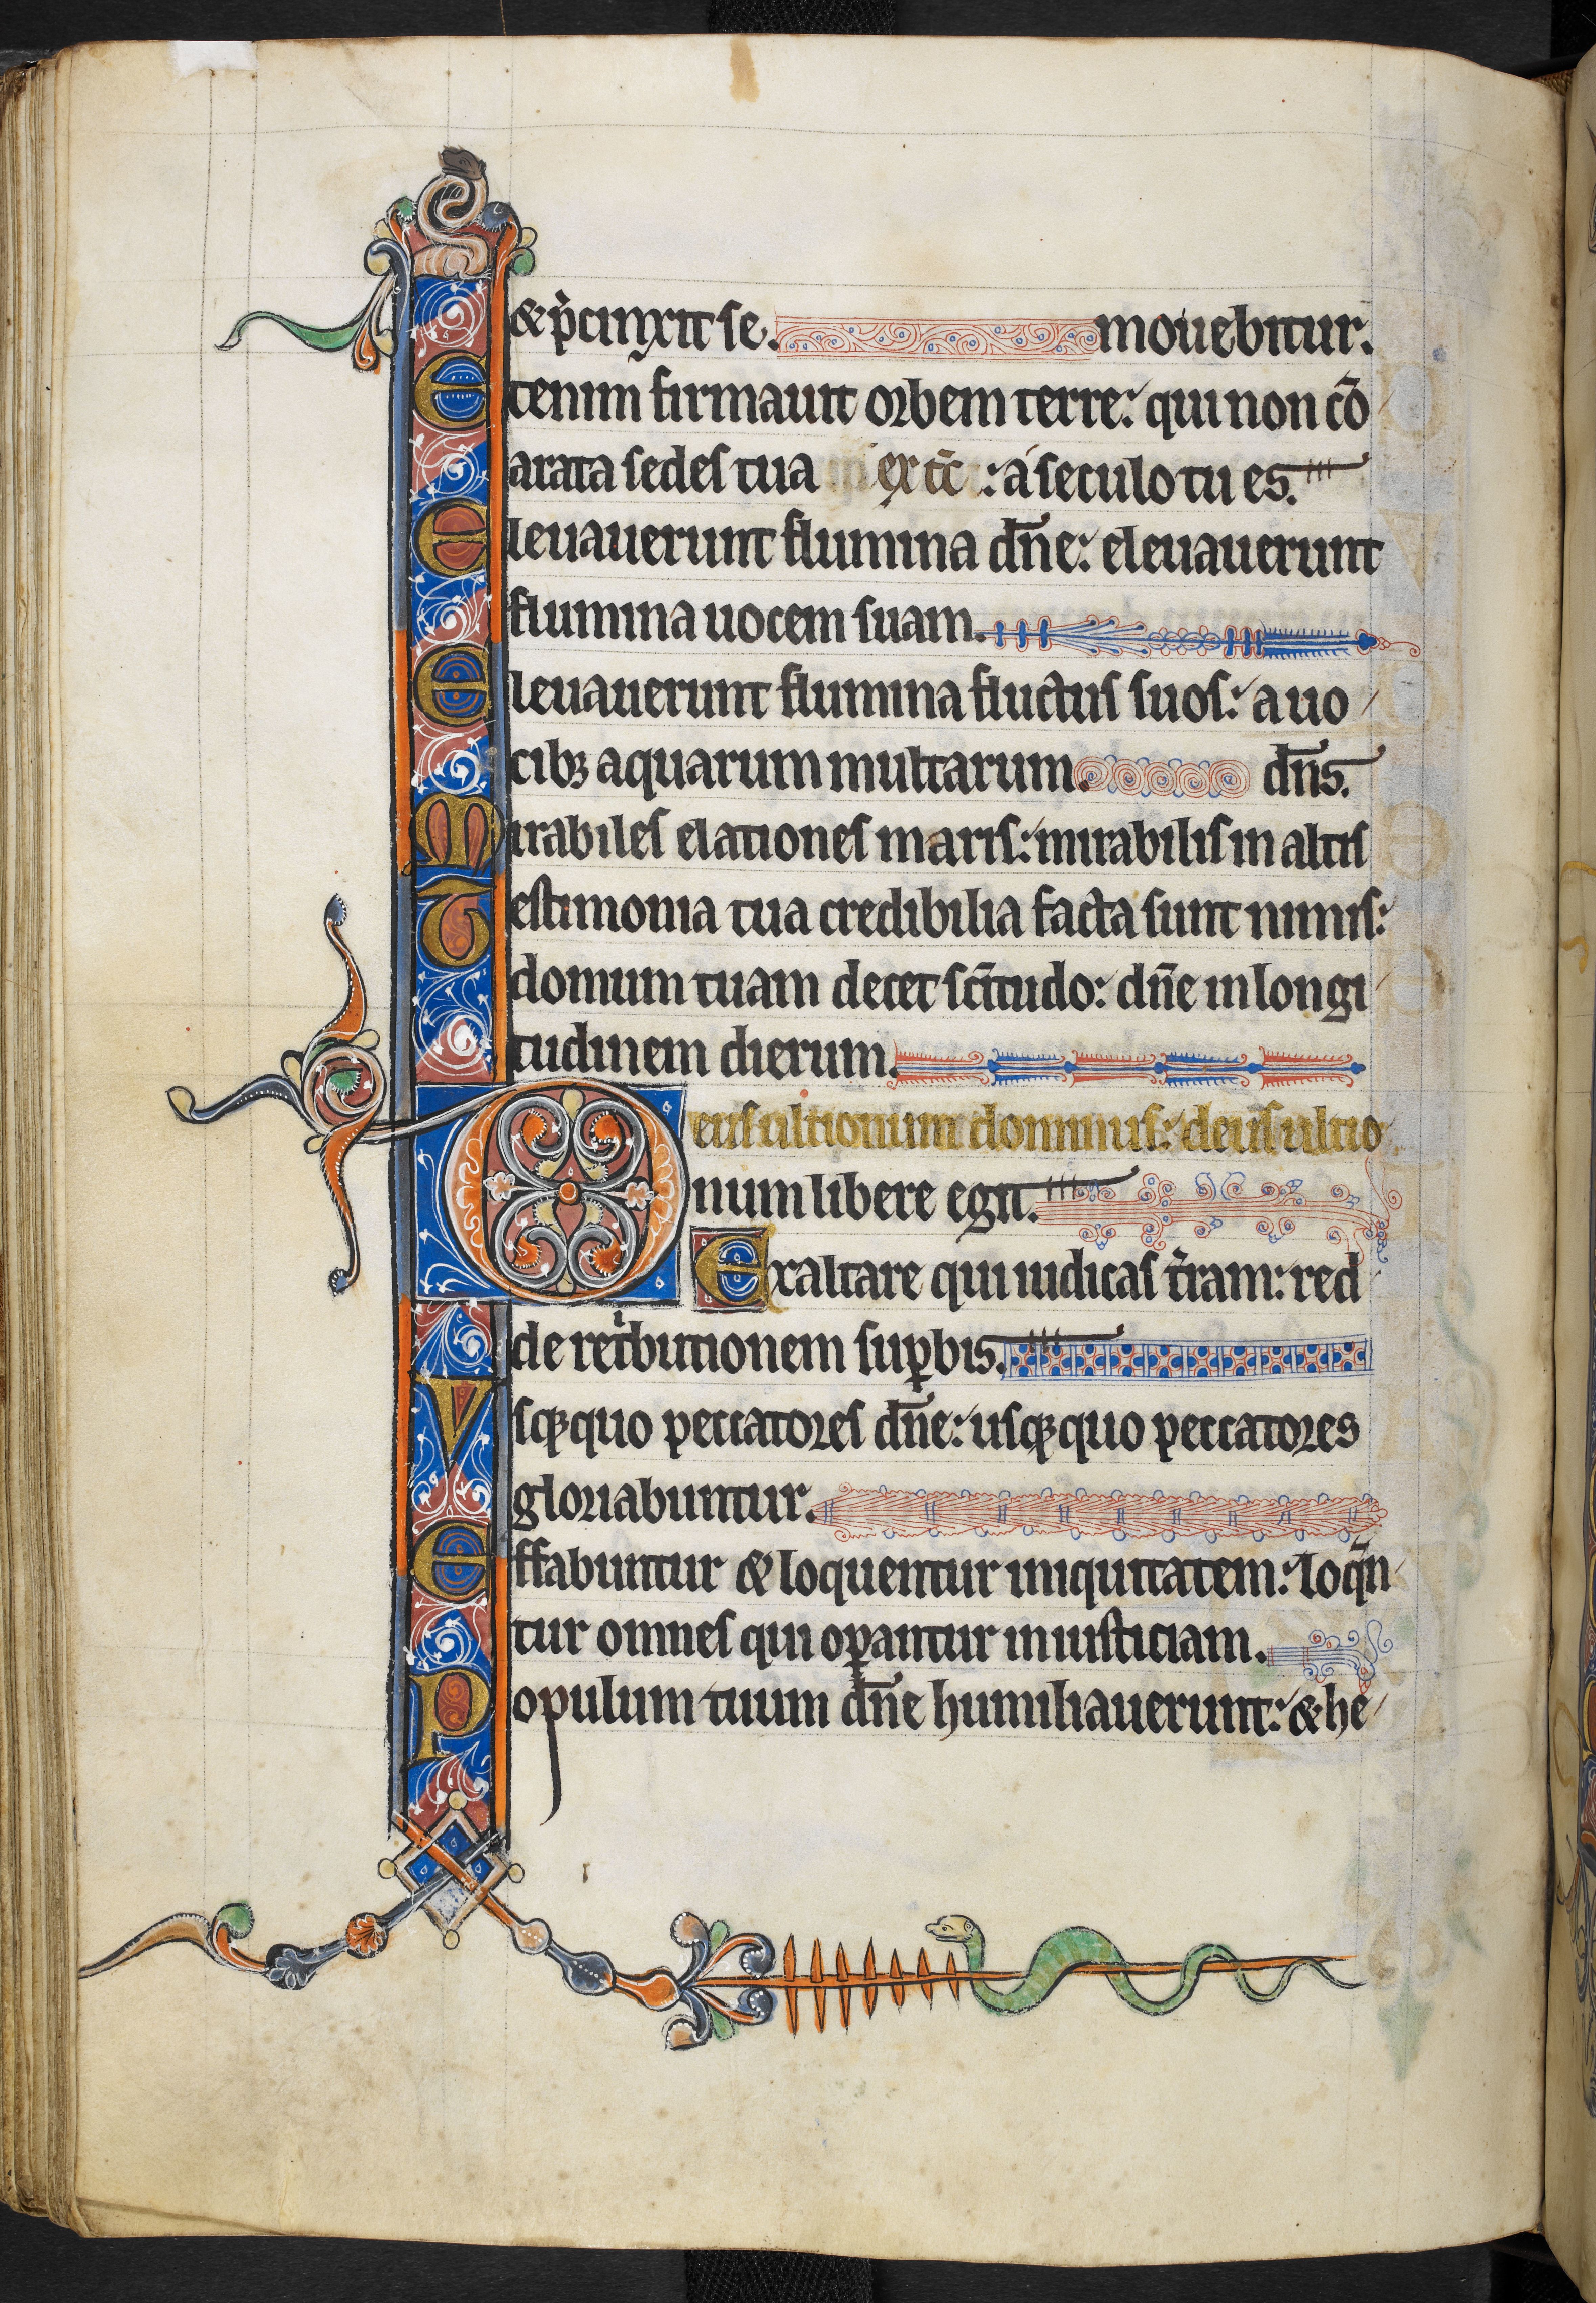 & p̍cinxit se. mouebitur.
Etenim firmauit orbem terre: qui non cō
Parata sedes tua ex tc̄ : a seculo tu es.
Eleuauerunt flumina dn̄e: eleuauerunt
flumina uocem suam.
Eleuauerunt flumina fluctus suos: a uo
cibꝫ aquarum multarum. dn̄s.
Mirabiles elationes maris: mirabilis in altis
Testimonia tua credibilia facta sunt nimis:
domum tuam decet sc̄itudo: dn̄e in longi
tudinem dierum.
Deus ultionum dominus: deus ultio
num libere egit.
Exaltare qui iudicas t̍ram: red
de ret̍butionem suꝑbis.
Vsqꝫquo peccatores dn̄e: usqꝫquo peccatores
gloriabuntur.
Effabuntur & loquentur iniquitatem: loqn̄
tur omnes qui oꝑantur iniusticiam.
Populum tuum dn̄e humiliauerunt: & he